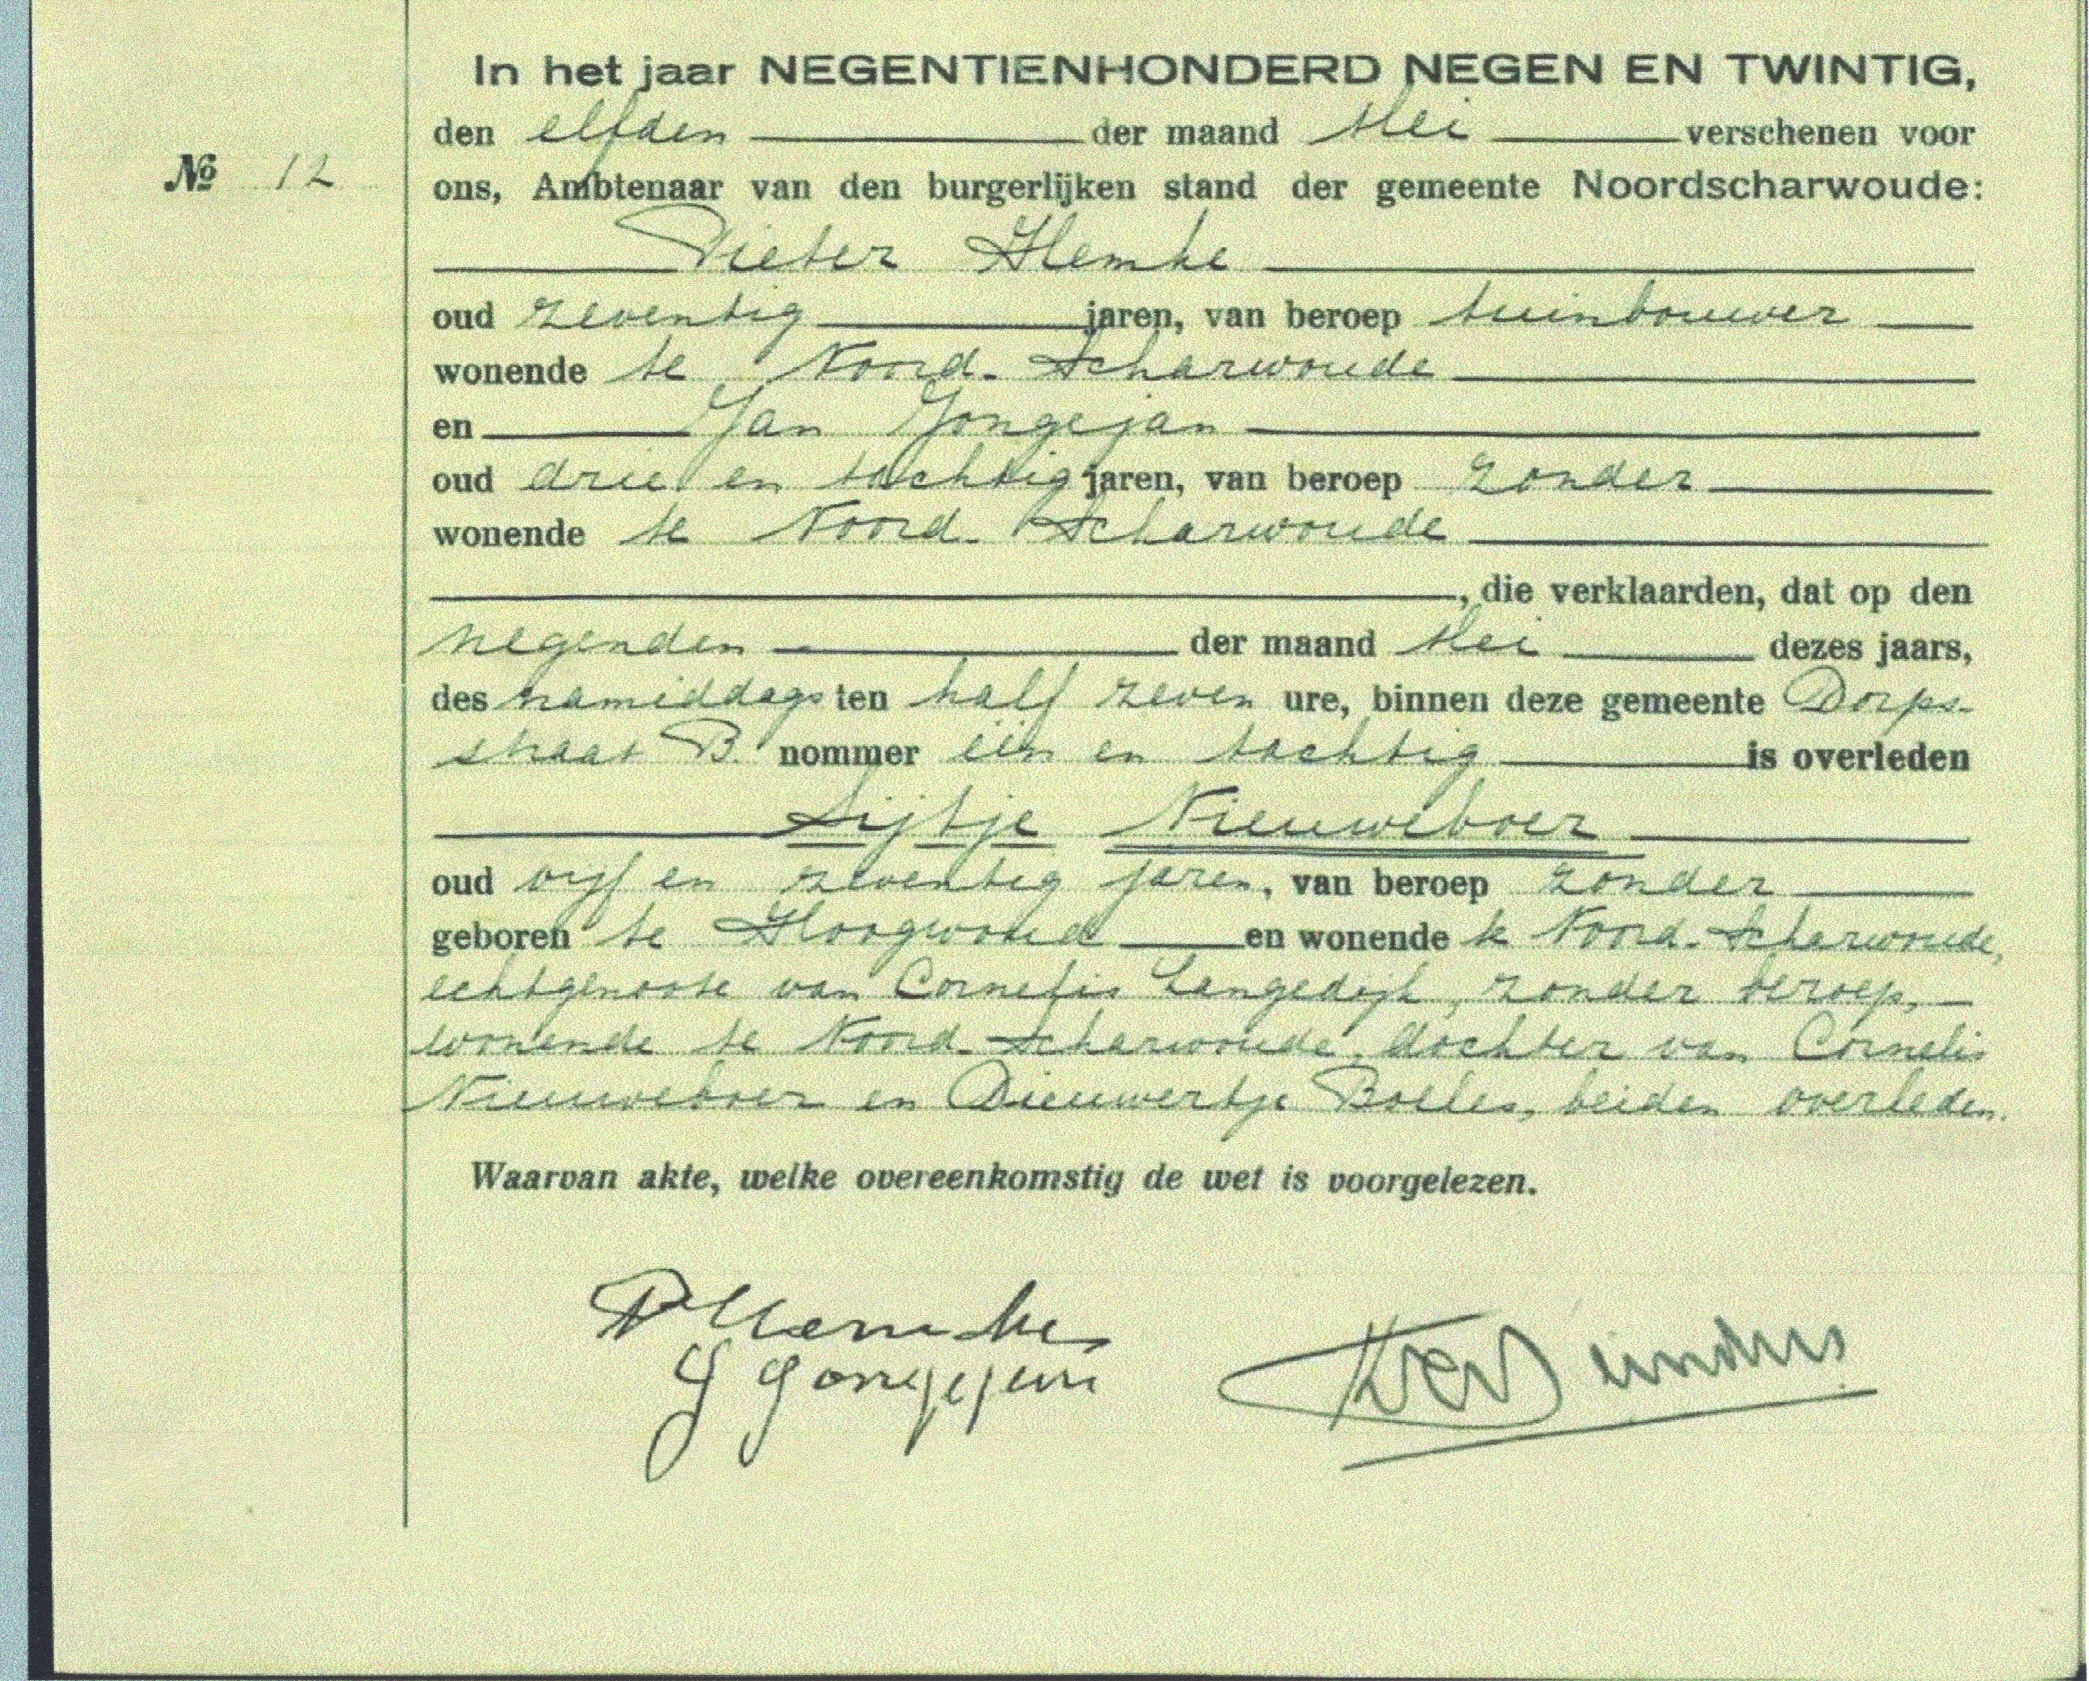 In het jaar NEGENTIENHONDERD NEGEN EN TWINTIG,
den elfden der maand Mei verschenen voor
No 12
ons, Ambtenaar van den burgerlijken stand der gemeente Noordscharwoude:
Pieter Hemke
oud zeventig jaren, van beroep tuinbouwer
wonende te Noord-Scharwoude
en Jan Jongejan
oud drie en tachtig jaren, van beroep zonder
wonende te Noord-Scharwoude
, die verklaarden, dat op den
negenden der maand Mei dezes jaars,
des namiddags ten half zeven ure, binnen deze gemeente Dorps-
straat B. nommer één en tachtig is overleden
Sijtje Nieuweboer
oud vijf en zeventig jaren, van beroep zonder
geboren te Hoogwoud en wonende te Noord-Scharwoude,
echtgenoote van Cornelis Langedijk, zonder beroep,
wonende te Noord-Scharwoude, dochter van Cornelis
Nieuweboer en Dieuwertje Boelles, beiden overleden.
Waarvan akte, welke overeenkomstig de wet is voorgelezen.
P Hemke
J Jongejan